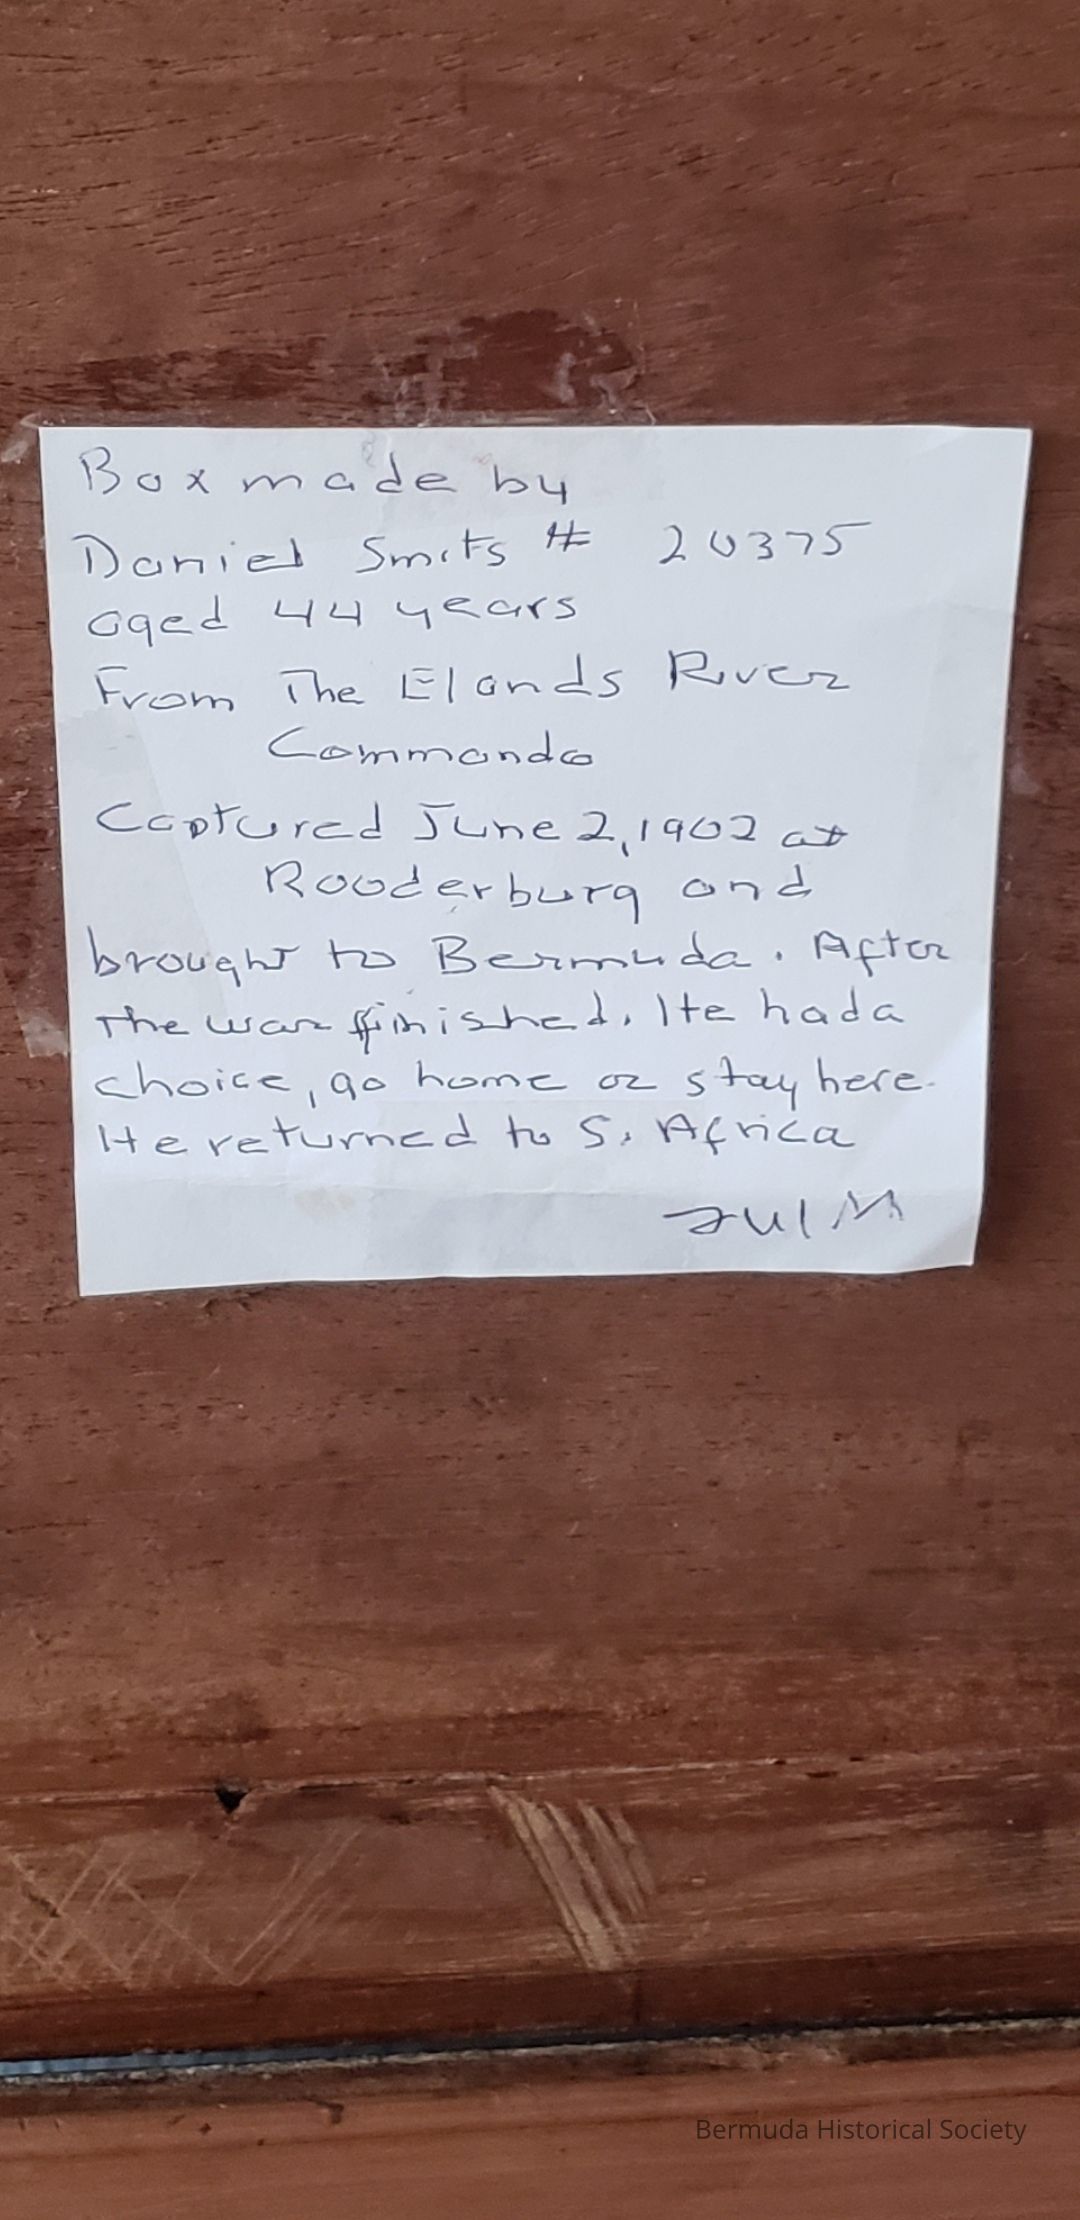 Box made by
Daniel Smits # 20375
aged 44 years
From The Elands River
Commando
Captured June 2, 1902 at
Rooderburg and
brought to Bermuda. After
the war finished. He had a
choice, go home or stay here.
He returned to S. Africa
Bermuda Historical Society